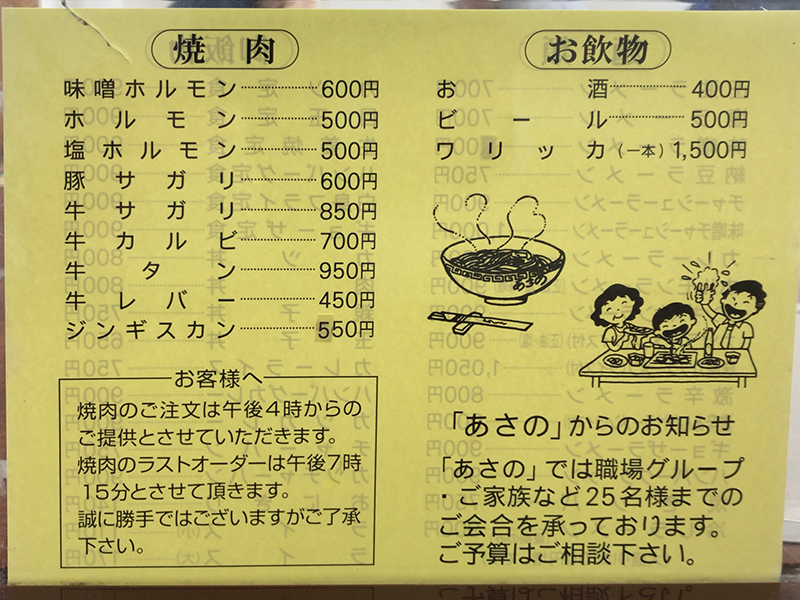 焼肉
味噌ホルモン 600円
ホルモン 500円
塩ホルモン 500円
豚サガリ 600円
牛サガリ 850円
牛カルビ 700円
牛タン 950円
牛レバー 450円
ジンギスカン 550円
お客様へ
焼肉のご注文は午後4時からの
ご提供とさせていただきます。
焼肉のラストオーダーは午後7時
15分とさせて頂きます。
誠に勝手ではございますがご了承
下さい。
お飲物
お酒 400円
ビール 500円
ワリッカ(一本) 1,500円
あさの
「あさの」からのお知らせ
「あさの」では職場グループ
・ご家族など25名様までの
ご会合を承っております。
ご予算はご相談下さい。